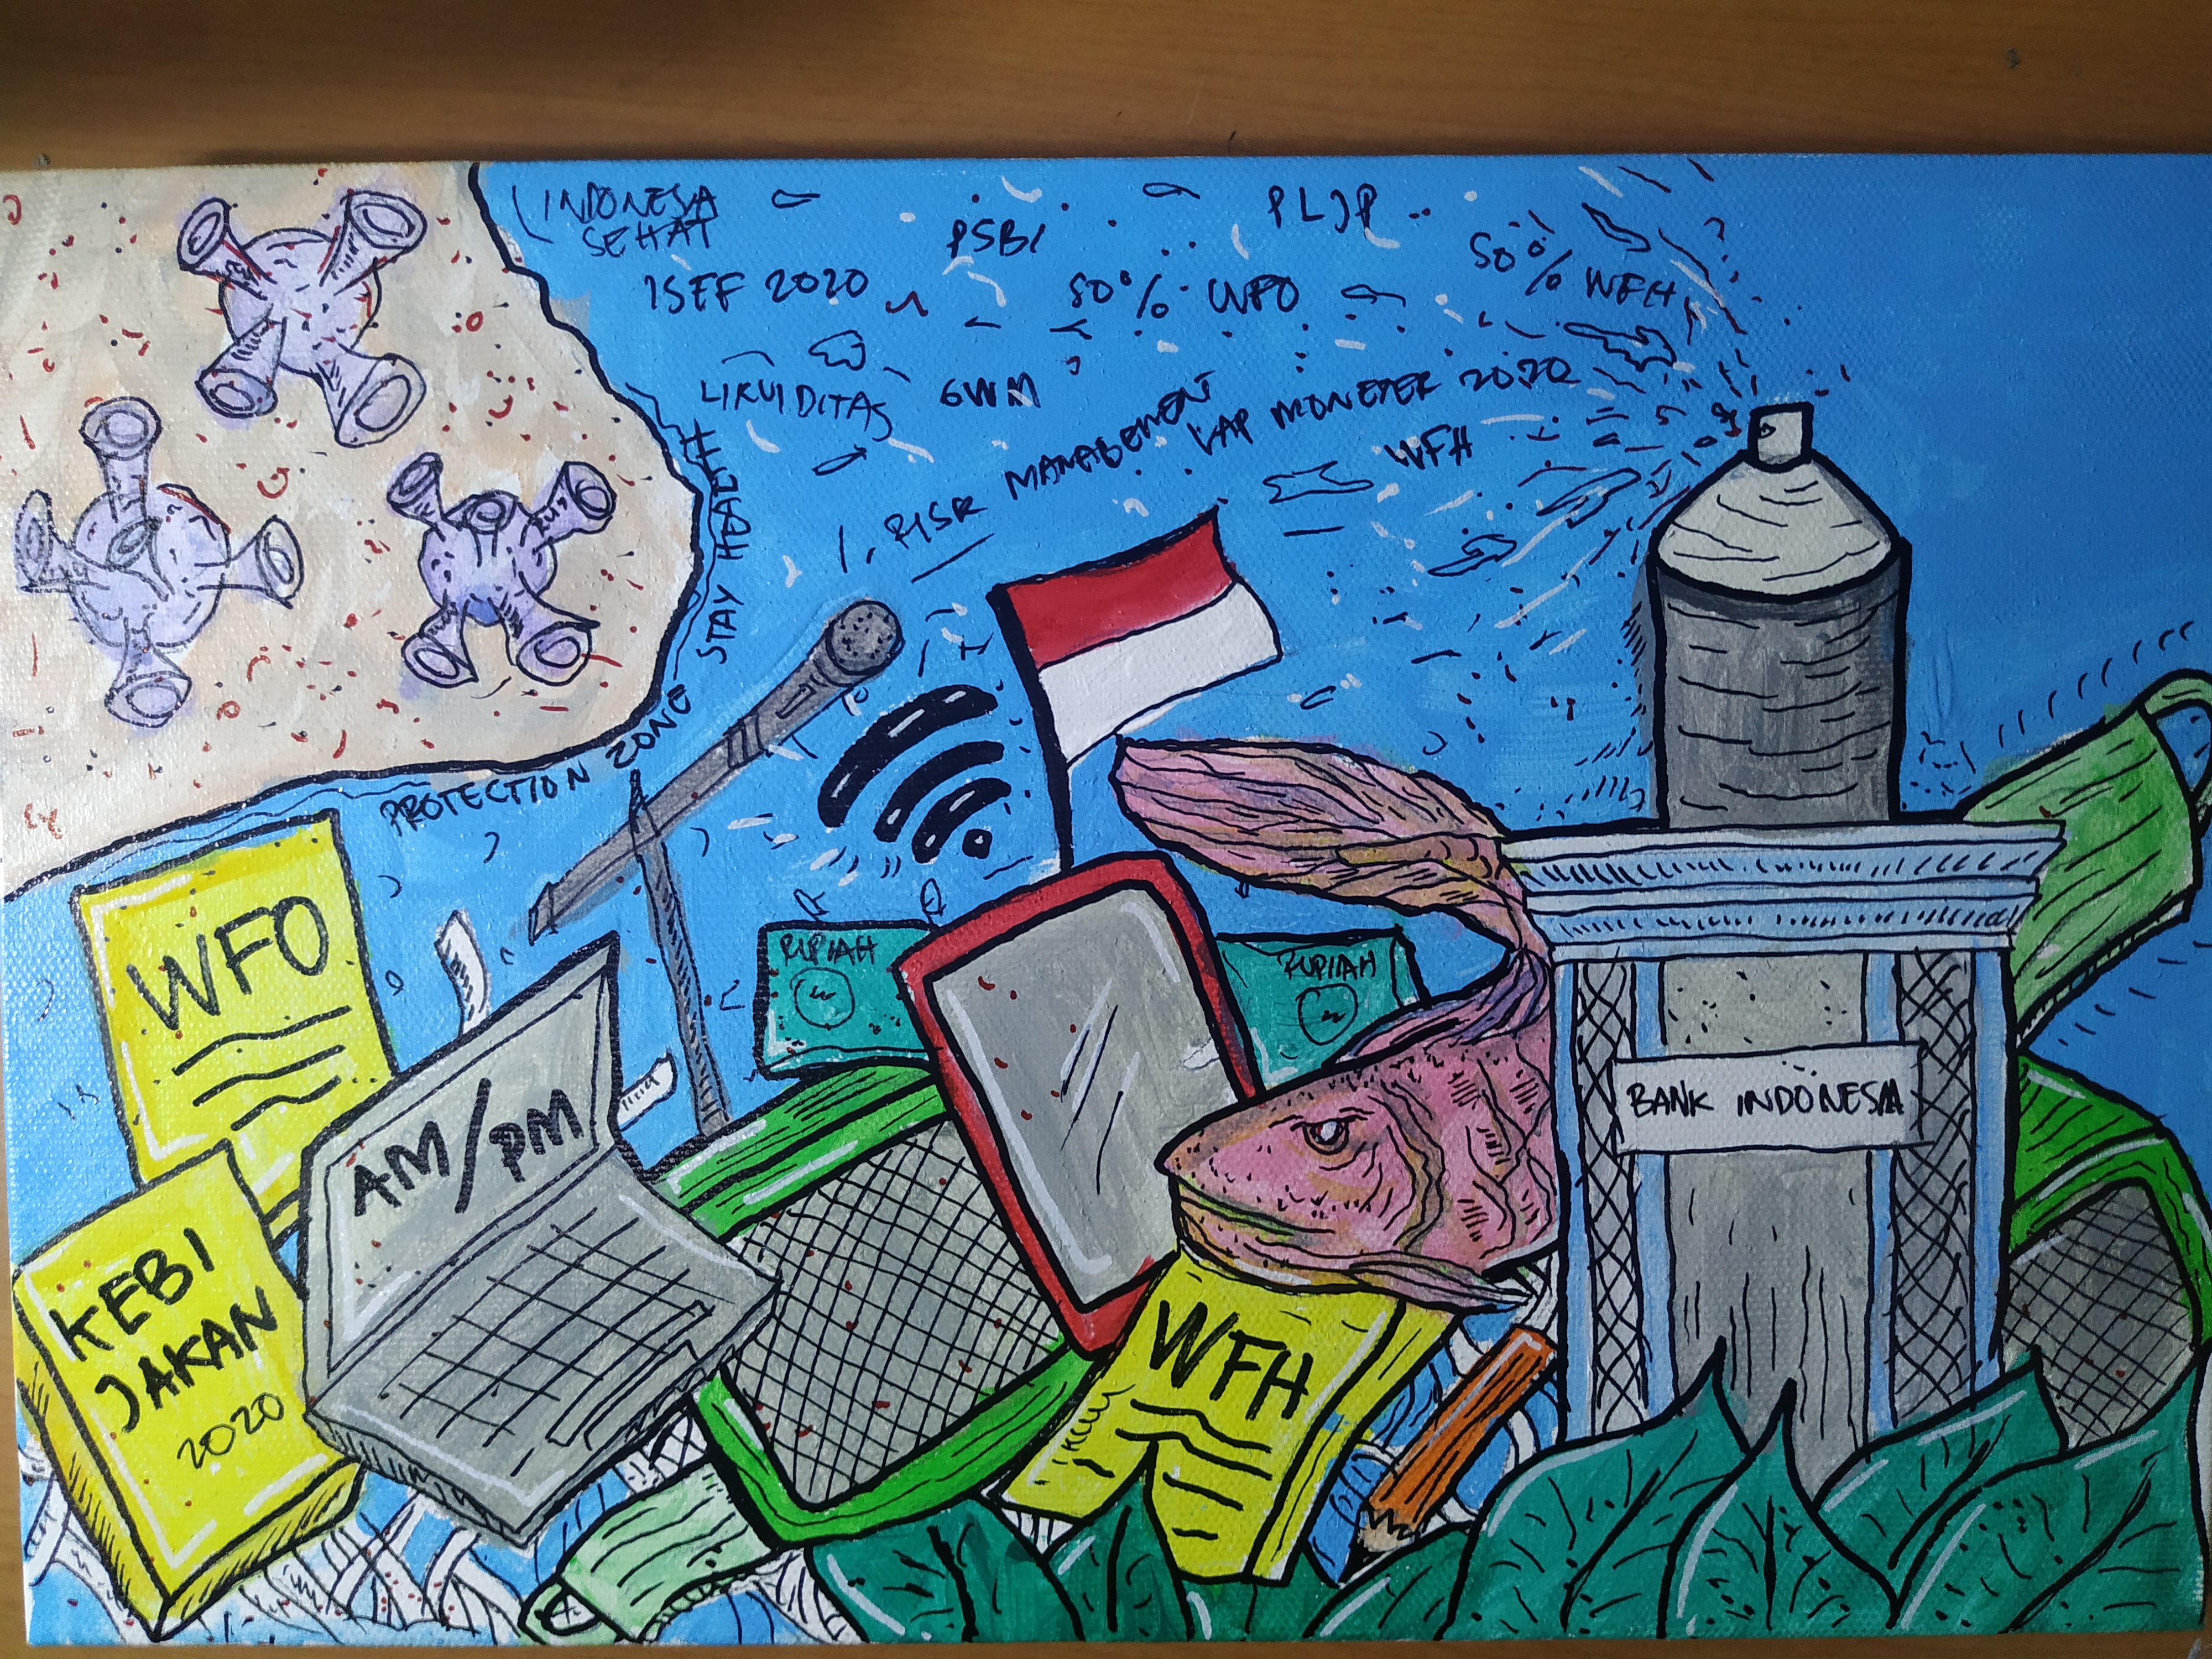 INDONESIA
SEHAT
PSBI
PLJP
ISEF 2020
50% WFO
50% WFH
LIKUIDITAS
GWM
1. RISK MANAGEMENT
LAP MONETER 2020
WFH
STAY HEALTH
PROTECTION ZONE
WFO
RUPIAH
RUPIAH
AM/PM
BANK INDONESIA
KEBI
JAKAN
2020
WFH